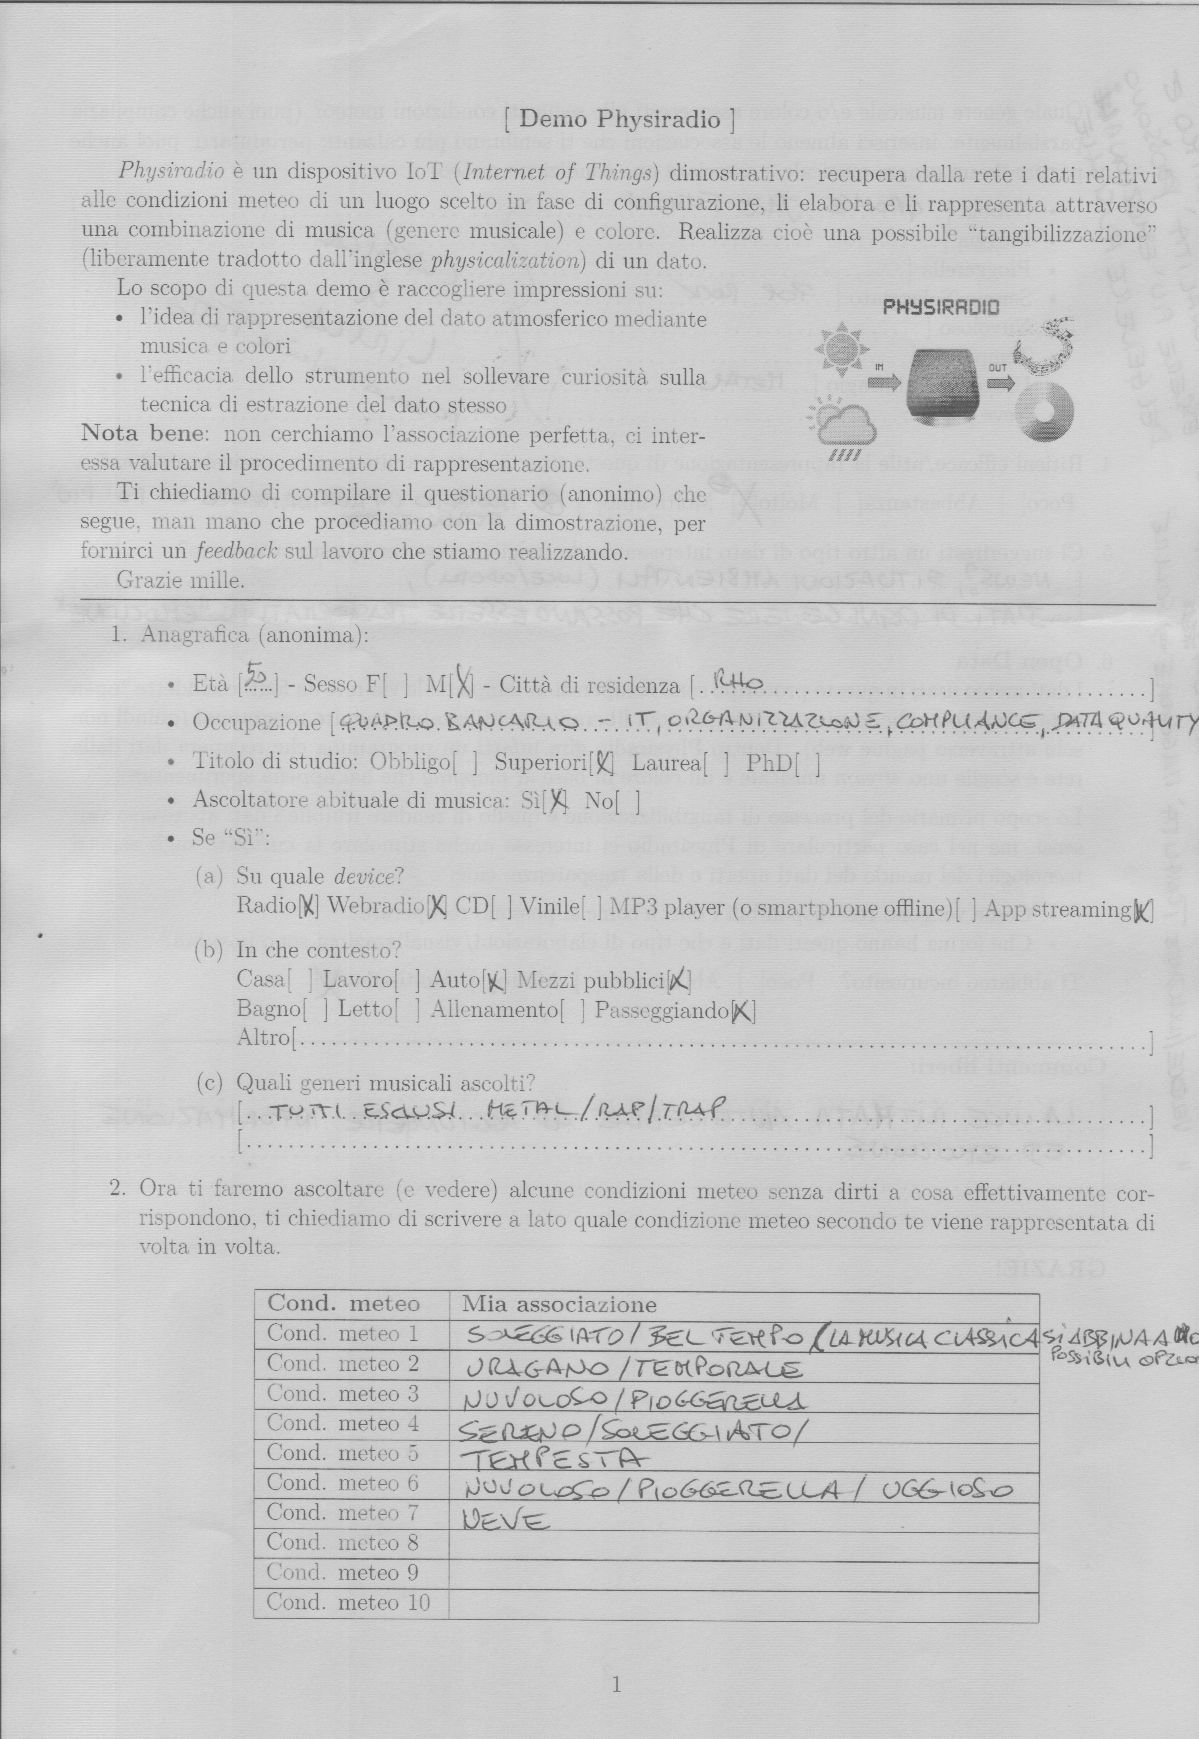 [ Demo Physiradio ]
Physiradio è un dispositivo IoT (Internet of Things) dimostrativo: recupera dalla rete i dati relativi
alle condizioni meteo di un luogo scelto in fase di configurazione, li elabora e li rappresenta attraverso
una combinazione di musica (genere musicale) e colore. Realizza cioè una possibile “tangibilizzazione”
(liberamente tradotto dall'inglese physicalization) di un dato.
Lo scopo di questa demo è raccogliere impressioni su:
• l'idea di rappresentazione del dato atmosferico mediante
musica e colori
• l'efficacia dello strumento nel sollevare curiosità sulla
tecnica di estrazione del dato stesso
Nota bene: non cerchiamo l'associazione perfetta, ci inter-
essa valutare il procedimento di rappresentazione.
Ti chiediamo di compilare il questionario (anonimo) che
segue, man mano che procediamo con la dimostrazione, per
fornirci un feedback sul lavoro che stiamo realizzando.
Grazie mille.
PHYSIRADIO
IN
OUT
1. Anagrafica (anonima):
• Età [50] - Sesso F[ ] M[X] - Città di residenza [RHO]
• Occupazione [QUADRO BANCARIO - IT, ORGANIZZAZIONE, COMPLIANCE, DATA QUALITY
• Titolo di studio: Obbligo[ ] Superiori[X] Laurea[ ] PhD[ ]
• Ascoltatore abituale di musica: Sì[X] No[ ]
• Se “Sì”:
(a) Su quale device?
Radio[X] Webradio[X] CD[ ] Vinile[ ] MP3 player (o smartphone offline)[ ] App streaming[X]
(b) In che contesto?
Casa[ ] Lavoro[ ] Auto[X] Mezzi pubblici[X]
Bagno[ ] Letto[ ] Allenamento[ ] Passeggiando[X]
Altro[..........]
(c) Quali generi musicali ascolti?
[TUTTI ESCLUSI METAL/RAP/TRAP]
[..........]
2. Ora ti faremo ascoltare (e vedere) alcune condizioni meteo senza dirti a cosa effettivamente cor-
rispondono, ti chiediamo di scrivere a lato quale condizione meteo secondo te viene rappresentata di
volta in volta.
Cond. meteo Mia associazione
Cond. meteo 1 SOLEGGIATO/BEL TEMPO (LA MUSICA CLASSICA SI ABBINA A
POSSIBILI
Cond. meteo 2 URAGANO/TEMPORALE
Cond. meteo 3 NUVOLOSO/PIOGGERELLA
Cond. meteo 4 SERENO/SOLEGGIATO/
Cond. meteo 5 TEMPESTA
Cond. meteo 6 NUVOLOSO/PIOGGERELLA/ UGGIOSO
Cond. meteo 7 NEVE
Cond. meteo 8
Cond. meteo 9
Cond. meteo 10
1